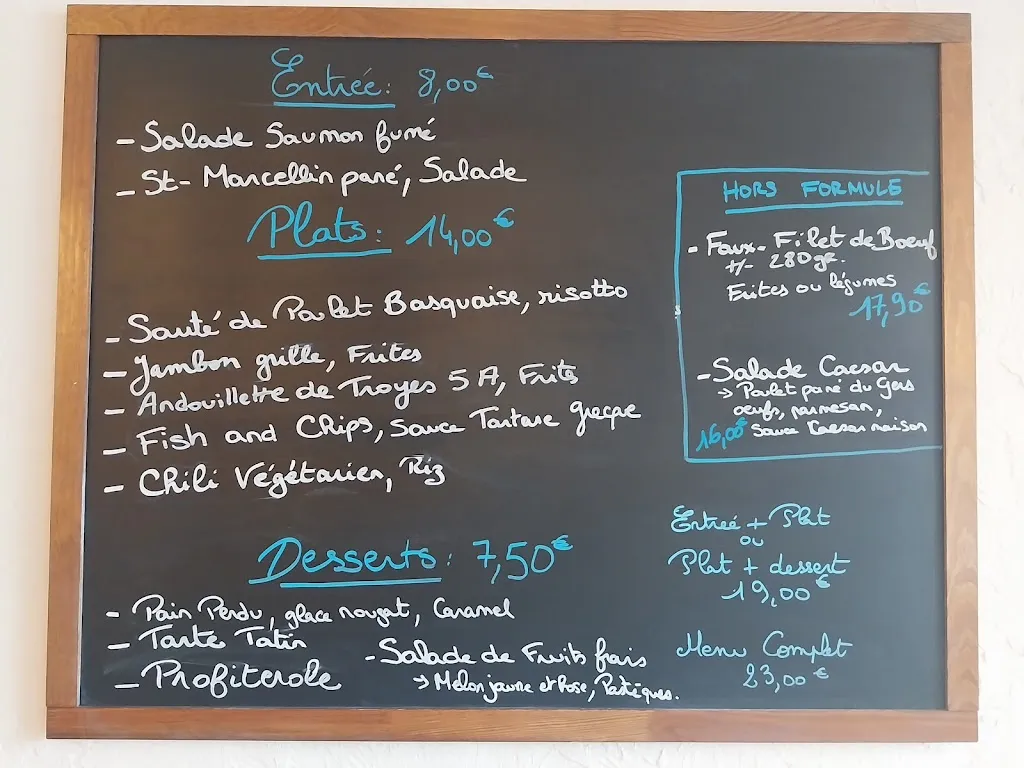 Entrée: 8,00€
- Salade Saumon fumé
- St-Marcellin pané, Salade
Plats: 14,00€
- Sauté de Poulet Basquaise, risotto
- Jambon grille, Frites
- Andouillette de Troyes 5 A, Frits
- Fish and Chips, Sauce Tartare grecque
- Chili Végétarien, Riz
Desserts: 7,50€
- Pain Perdu, glace nougat, Caramel
- Tarte Tatin
- Profiterole
- Salade de Fruits frais
→ Melon jaune et Rose, Pastèques.
HORS FORMULE
- Faux-Filet de Boeuf
+/- 280gr.
Frites ou légumes
17,90€
- Salade Caesar
→ Poulet pané du Gers
oeufs, parmesan,
16,00€ Sauce Caesar maison
Entreé + Plat
ou
Plat + dessert
19,00€
Menu Complet
23,00€